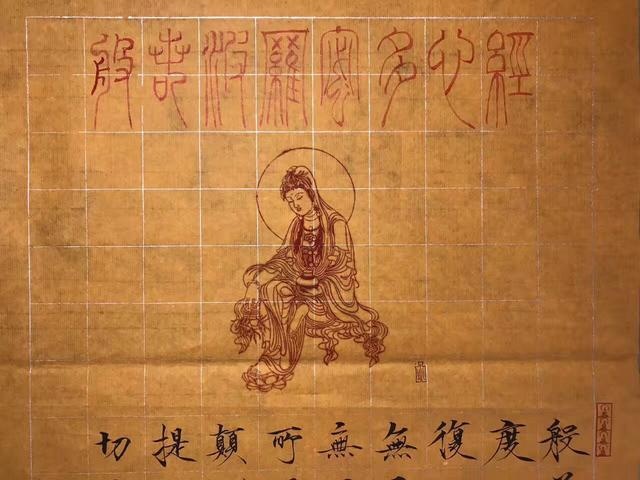 般若波羅蜜多心經
般
度
復
無
無
所
顛
提
切